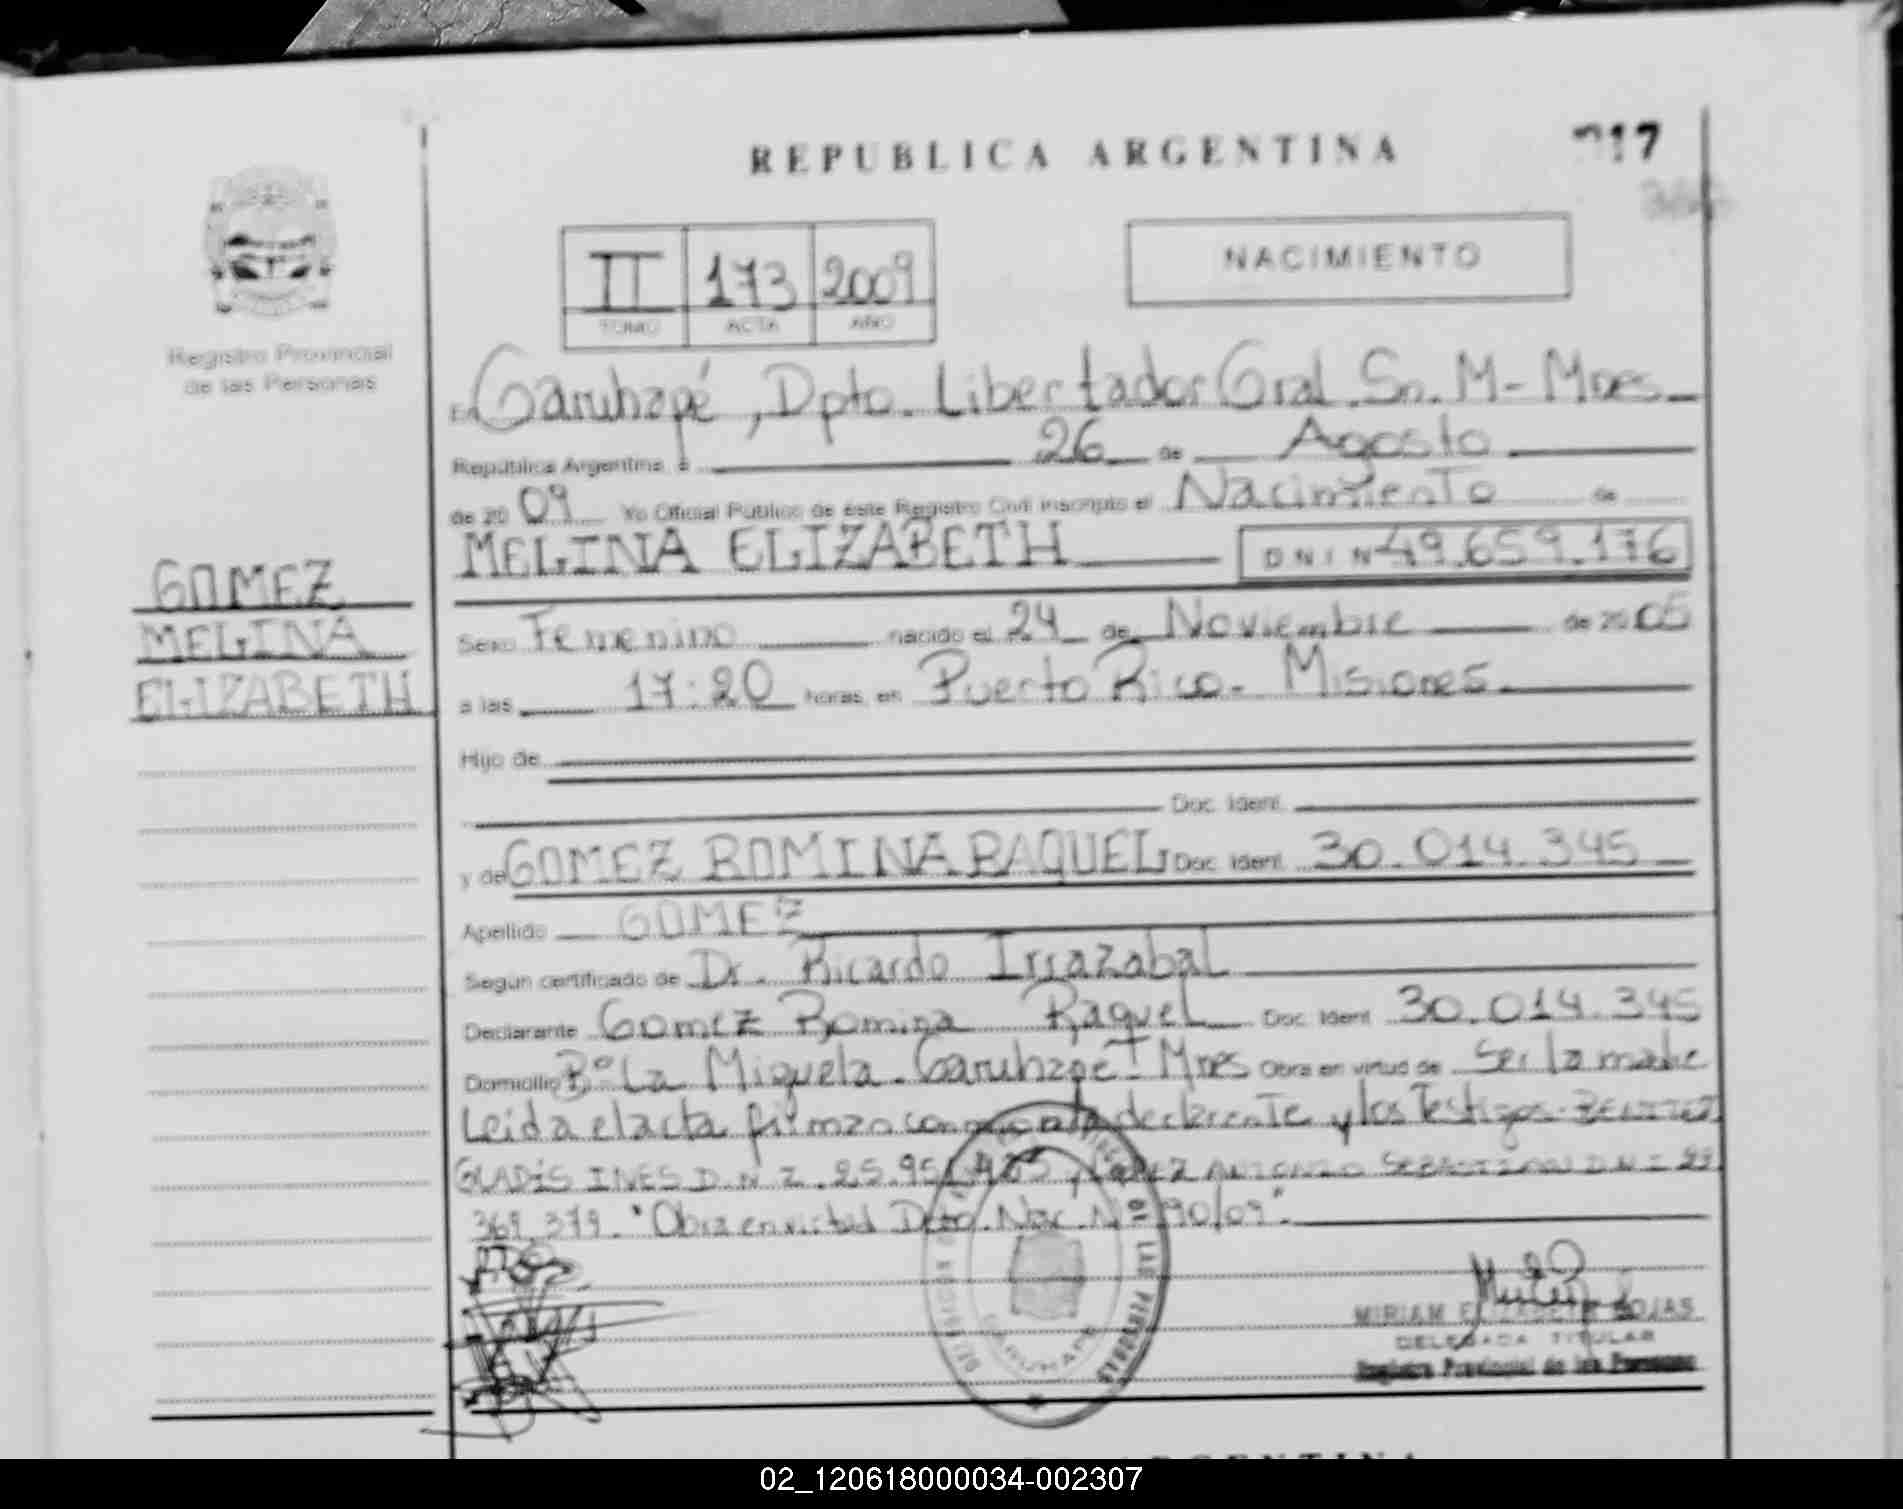 REPUBLICA ARGENTINA
17
II 173 2009
TOMO ACTA AÑO
NACIMIENTO
Registro Provincial
de las Personas
En Garuhapé, Dpto. Libertador Gral. Sn. M - Mnes
República Argentina a 26 de Agosto
de 2009 Yo Oficial Público de éste Registro Civil inscripto el Nacimiento de
MELINA ELIZABETH DNI N 49.659.176
GOMEZ
MELINA
ELIZABETH
Sexo Femenino nacido el 24 de Noviembre de 2005
a las 17:20 horas, en Puerto Rico - Misiones
Hijo de
Doc. Ident.
y de GOMEZ ROMINA RAQUEL Doc. Ident. 30.014.345
Apellido GOMEZ
Según certificado de Dr. Ricardo Irrazabal
Declarante Gomez Romina Raquel Doc. Ident 30.014.345
Domicilio Bº La Miguela - Garuhapé - Mnes Obra en virtud de Ser la madre
Leida el acta firman conmigo la declarente y los Testigos - BENITEZ
GLADIS INES D.N.I. 25.95 ANTONIO SEBASTIAN D.N.I 29
369.379. "Obra en virtud Dcto. Nac. Nº 90/09".
LAS PERSONAS
GARUHAPE
MIRIAM ELIZABETH ROJAS
DELEGADA TITULAR
Registro Provincial de las Personas
02_120618000034-002307